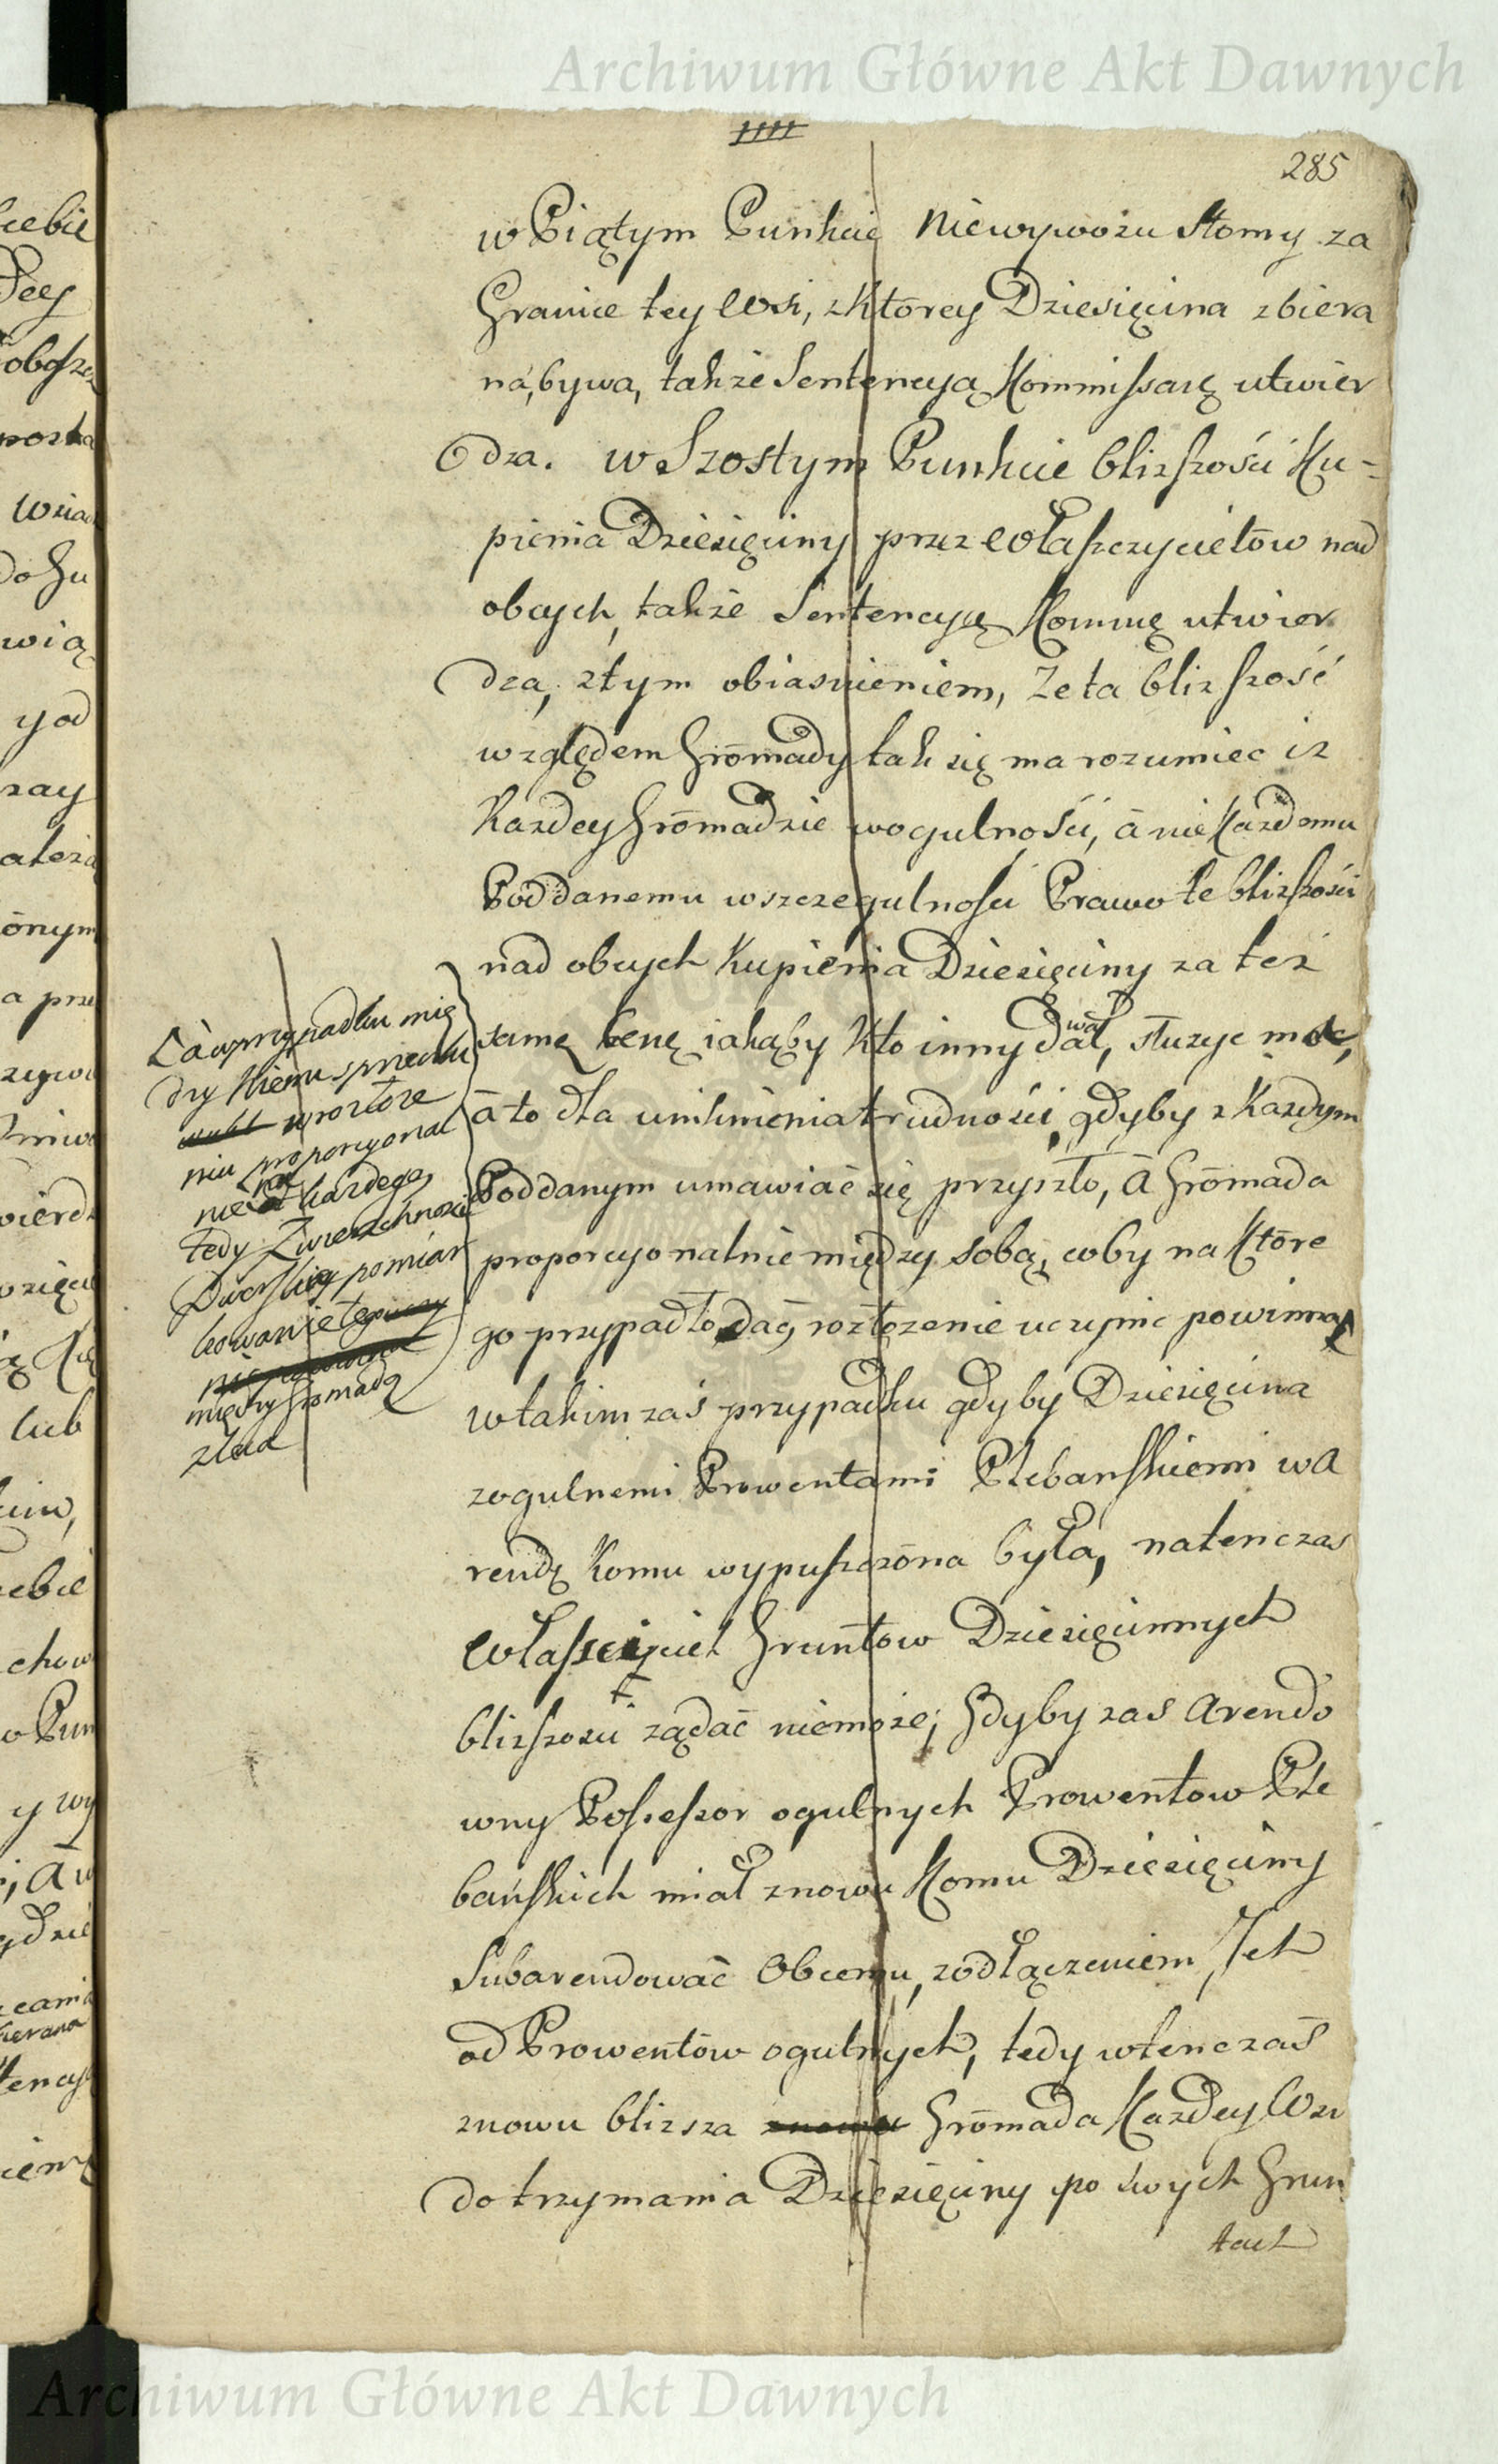 Archiwum Główne Akt Dawnych
285
w Piątym Punkcie Niewywozu Słomy za
Granice tey Wsi, z Ktorey Dziesięcina zbiera
na bywa, takze Sentencyą Kommissarę utwier
dza. w Szostym Punkcie bliższości Ku-
pienia Dziesięciny przez Własczycielow nad
obcych, takze Sentencyę Kommę utwier
dza, z tym obiasnieniem, Ze ta bliższość
względem Gromady tak się ma rozumiec iz
Kazdey Gromadzie wogulności, a nie Kazdemu
Poddanemu wszczegulności Prawo te bliższości
nad obcych Kupienia Dziesięciny za też
samę Cenę iakąby Kto inny dawał, służyc ma,
a to dla uniknienia trudności, gdyby z Kazdym
Poddanym umawiać się przyszło, a Gromada
proporcyonalnie między sobą, coby na Ktore
go przypadło dać, rozłozenie uczynic powinna
w takim zaś przypadku gdyby Dziesięcina
z ogulnemi Prowentami Plebanskiemi w A
rendę Komu wypuszczona była, natenczas
Własciciel Gruntow Dziesięcinnych
bliższosci ządać niemoze; Gdyby zas Arendo
wny Possessor ogulnych Prowentow Ple
bańskich miał znowu Komu Dziesięciny
Subarendować Obcemu, z odłączeniem Ich
od Prowentow ogulnych, tedy wtenczaś
znowu blizsza znowu Gromada Kazdey Wsi
do trzymania Dziesięciny po swych Grun
tach
Za w przypadku mię
dzy Niemi sprzeczki
w rozłoze
niu proporcyonal
nie na kazdego,
tedy Zwierzchności
Dworskiey pomiar
kowanie
między Gromadą
zleca
Archiwum Główne Akt Dawnych